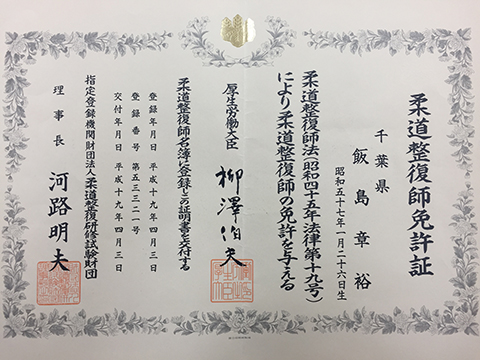 柔道整復師免許証
千葉県
飯島章裕
昭和五十七年一月二十六日生
柔道整復師法(昭和四十五年法律第十九号)
により柔道整復師の免許を与える
厚生労働大臣 柳澤伯夫
柔道整復師名簿に登録しこの証明書を交付する
登録年月日 平成十九年四月三日
登録番号 第五三三二一号
交付年月日 平成十九年四月三日
指定登録機関財団法人柔道整復研修試験財団
理事長 河路明夫